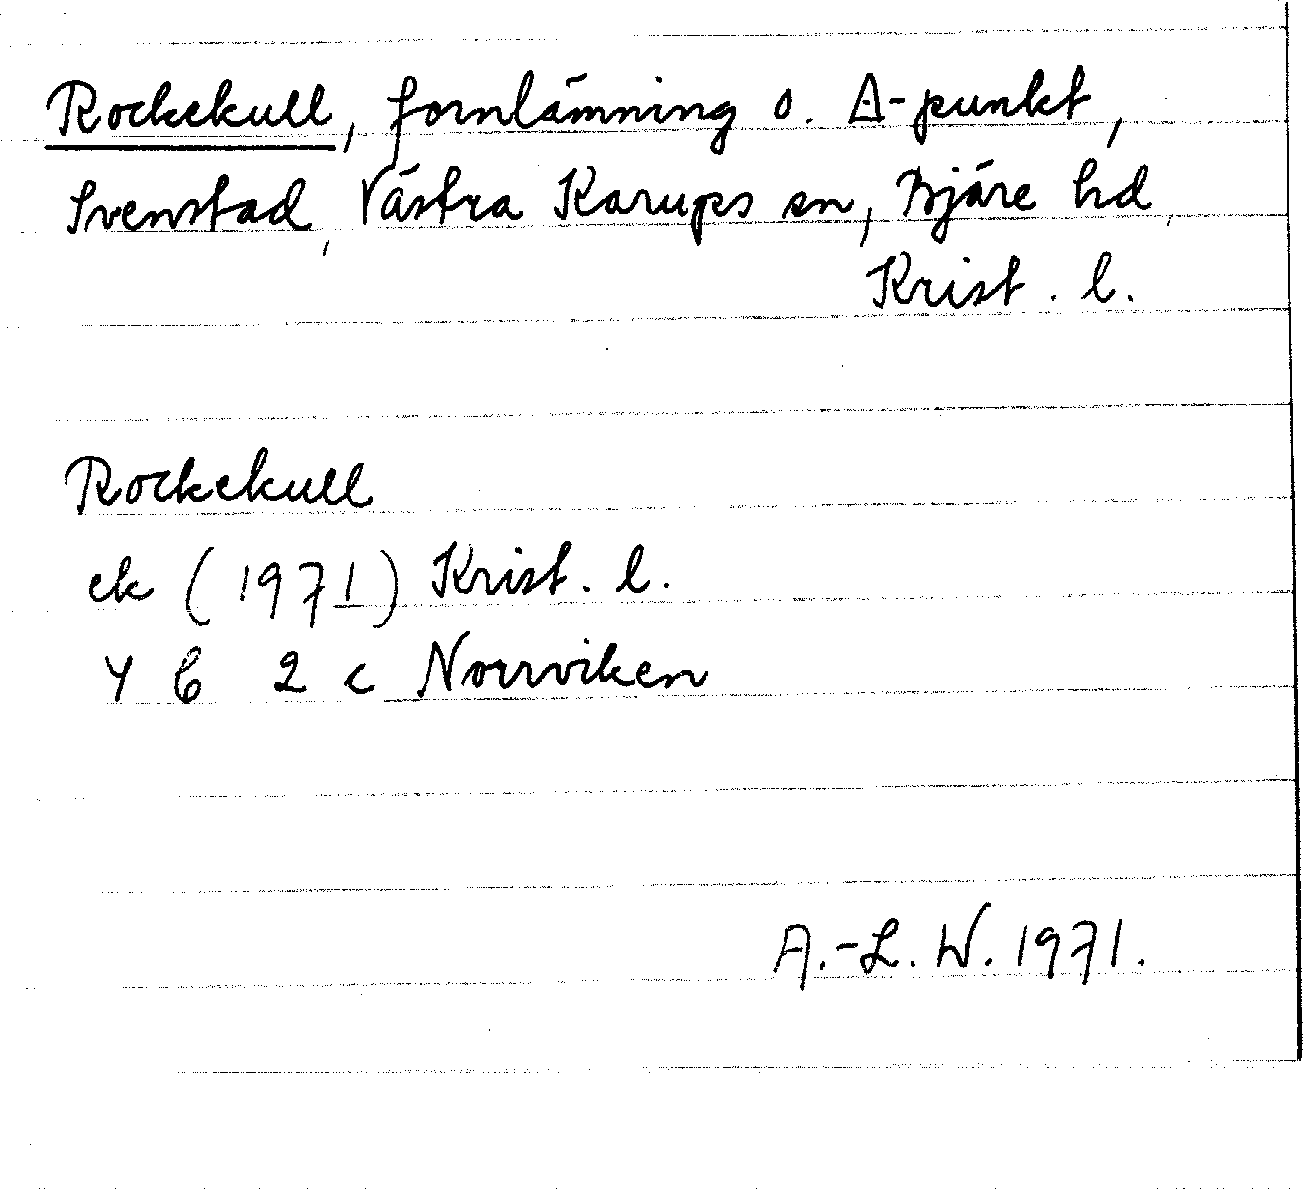 Rockekull, fornlämning o. Δ-punkt,
Svenstad, Västra Karups sn, Bjäre hd,
Krist. l.
Rockekull
ek (1971) Krist. l.
4 C 2 c Norrviken
A.-L. W. 1971.